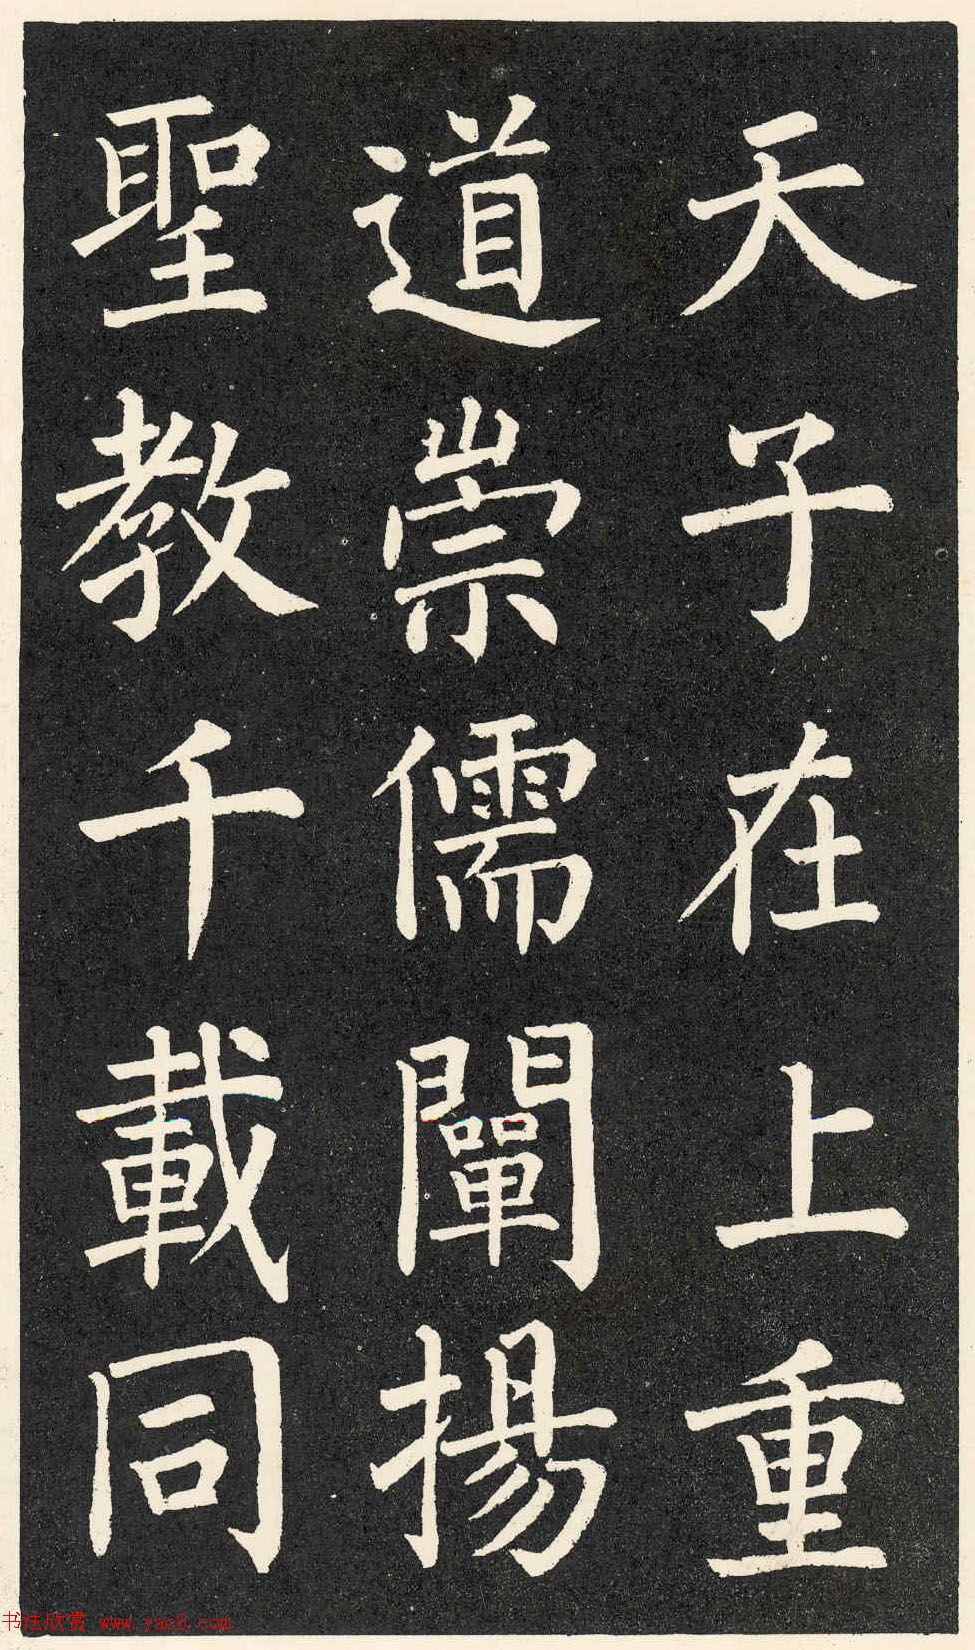 天子在上重
道崇儒闡揚
聖教千載同
书法欣赏 www.yac8.com